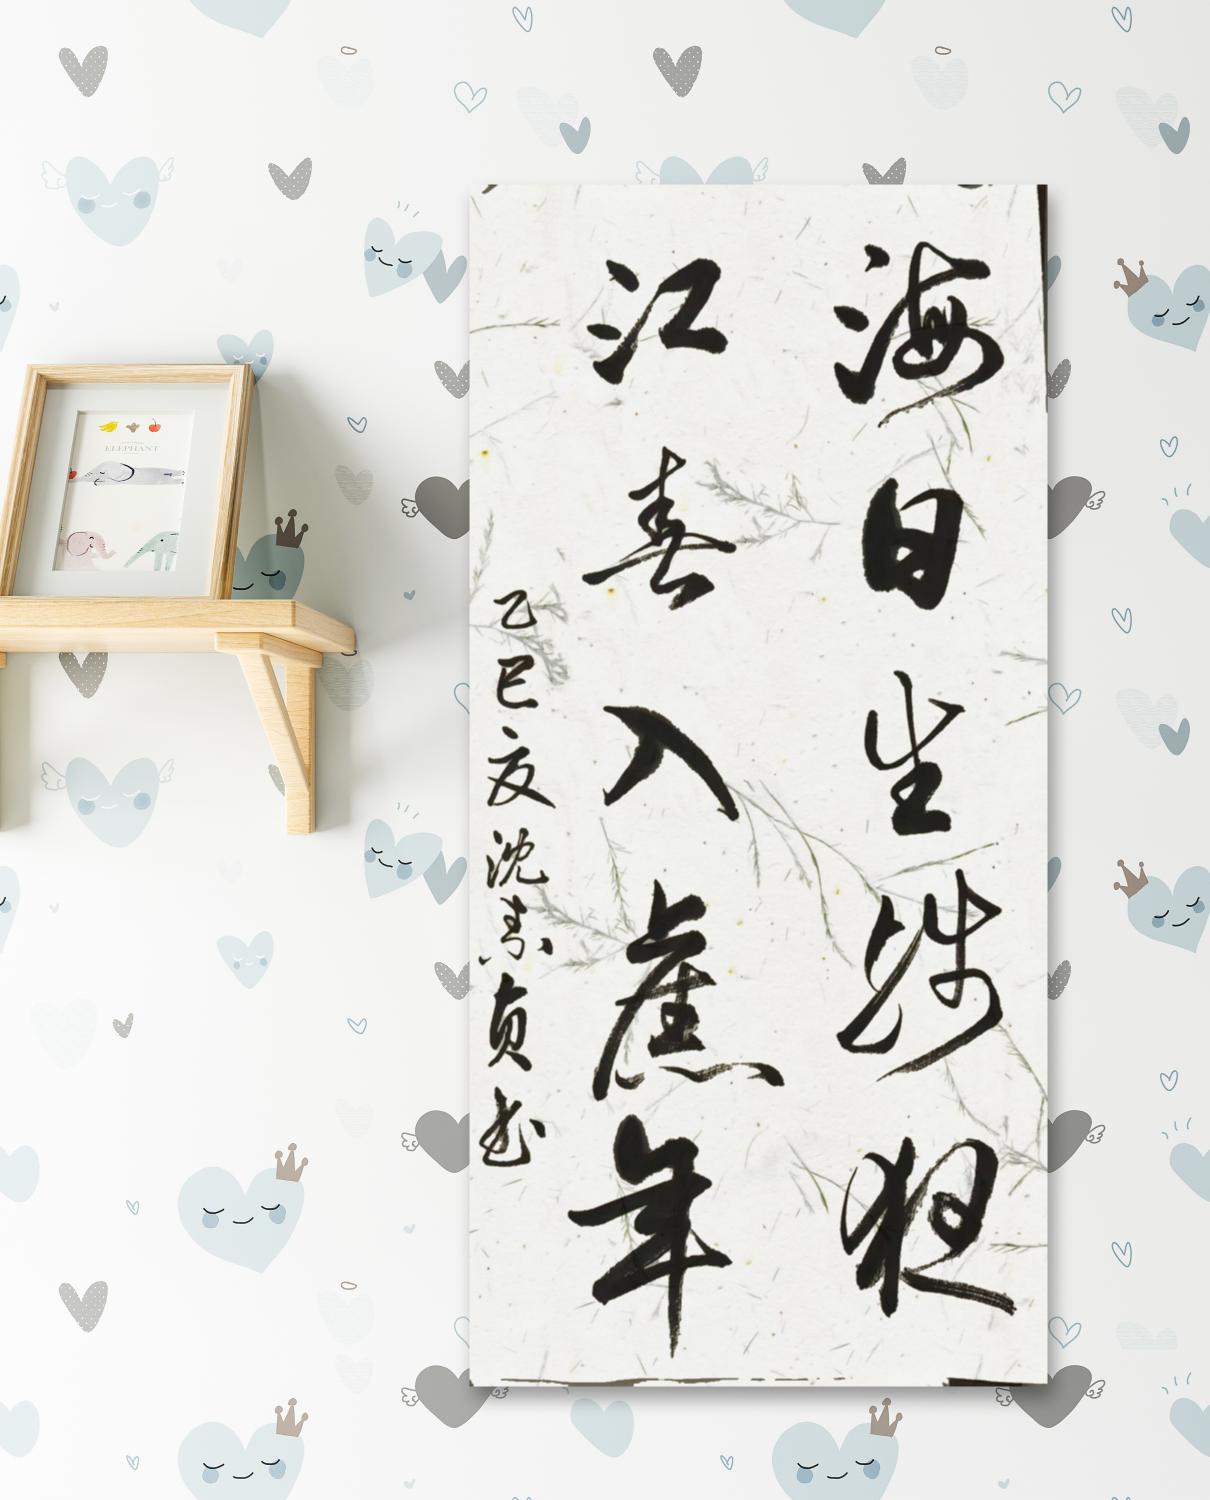 海日生残夜
江春入舊年
乙巳夏沈素贞书
ELEPHANT